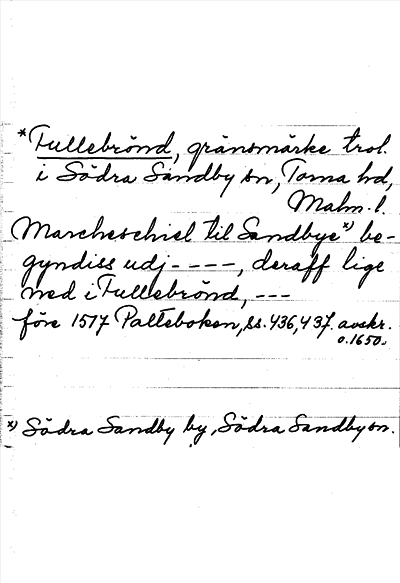 *Fullebrönd, gränsmärke trol.
i Södra Sandby sn, Torna hd,
Malm. l.
Marcheschiel til Sandbye x) be-
gyndiss udj - - - -, deraff lige
ned i Fullebrönd, - - -
före 1517 Palteboken, ss. 436, 437. avskr.
o. 1650.
x) Södra Sandby by, Södra Sandby sn.